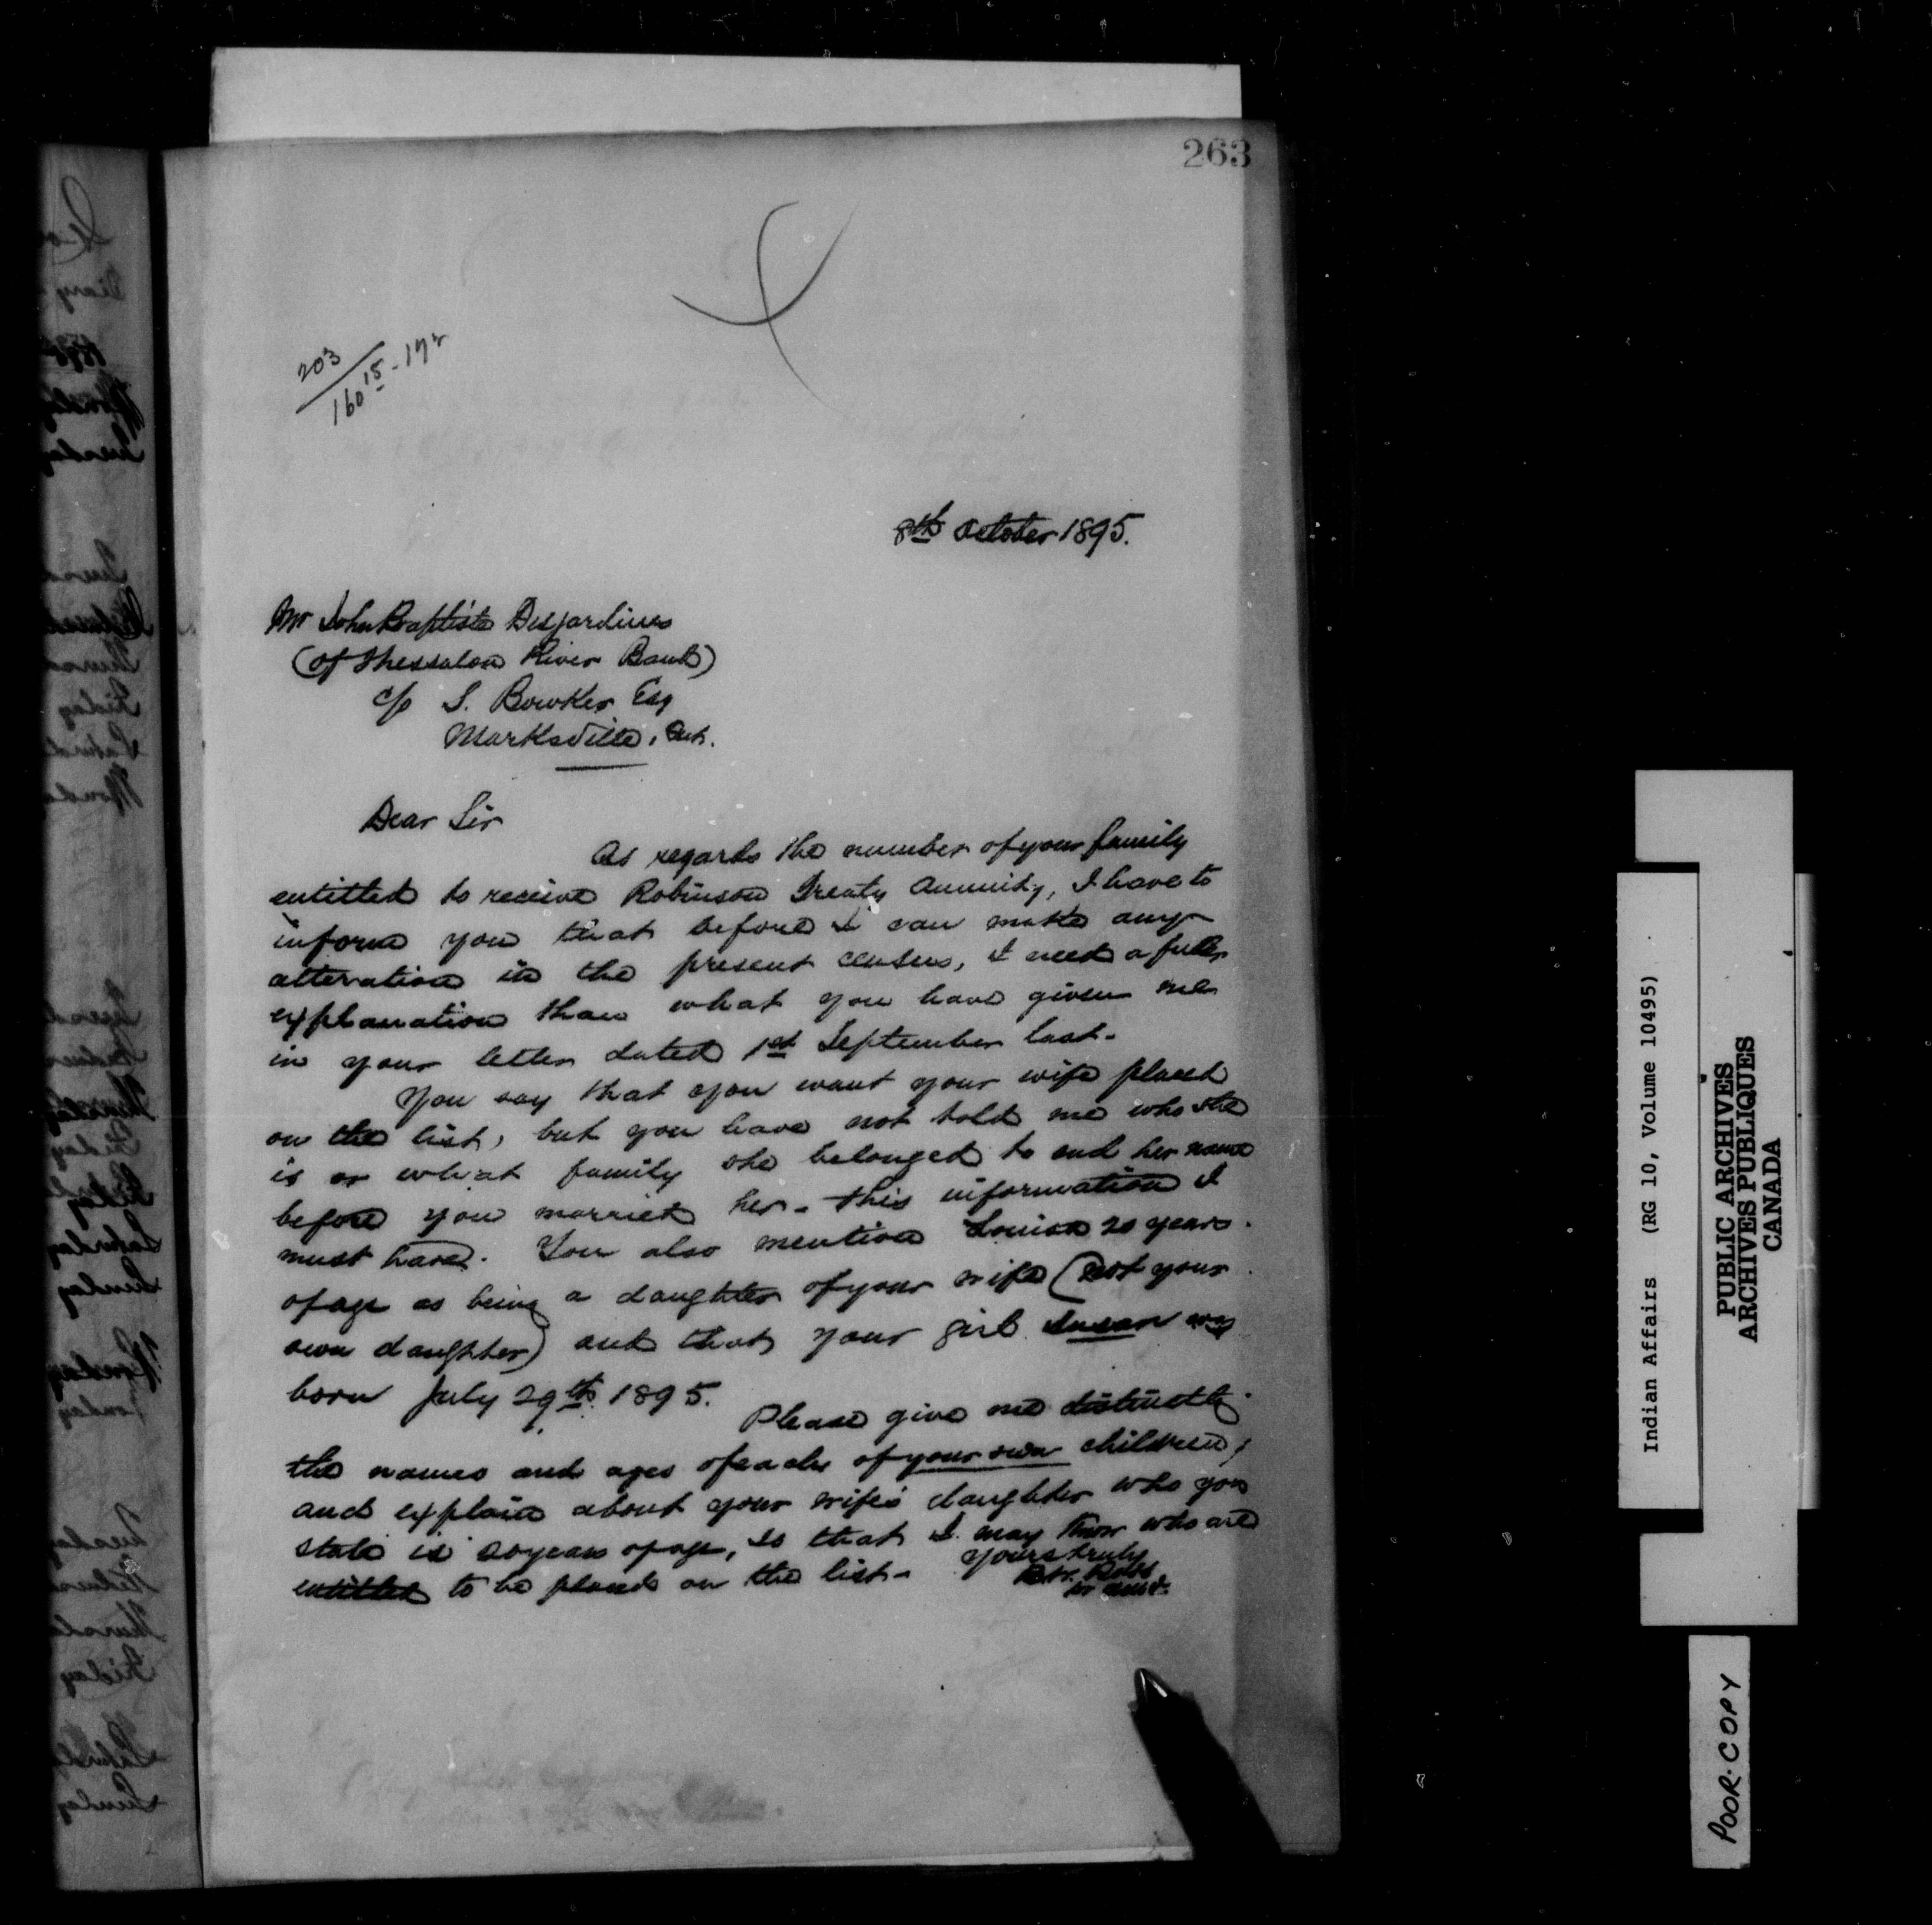 263
203
160 15 - 172
8th October 1895.
Mr John Baptiste Desjardines
(of Thessalon River Band)
c/o S. Bowker Esq
Marksville, Ont.
Dear Sir
As regards the number of your family
entitled to receive Robinson Treaty Annuity, I have to
inform you that before I can make any
alteration in the present census, I need a fuller
explanation than what you have given me
in your letter dated 1st September last.
You say that you want your wife placed
on the list, but you have not told me who she
is or what family she belonged to and her name
before you married her - this information I
must have. You also mention Louisa 20 years
of age as being a daughter of your wife (not your
own daughter) and that your girl Susan was
born July 29th 1895.
Please give me distinctly
the names and ages of each of your own children,
and explain about your wife's daughter who you
state is 20 years of age, so that I may know who are
entitled to be placed on the list -
Yours truly
Indian Affairs (RG 10, Volume 10495)
PUBLIC ARCHIVES
ARCHIVES PUBLIQUES
CANADA
POOR-COPY